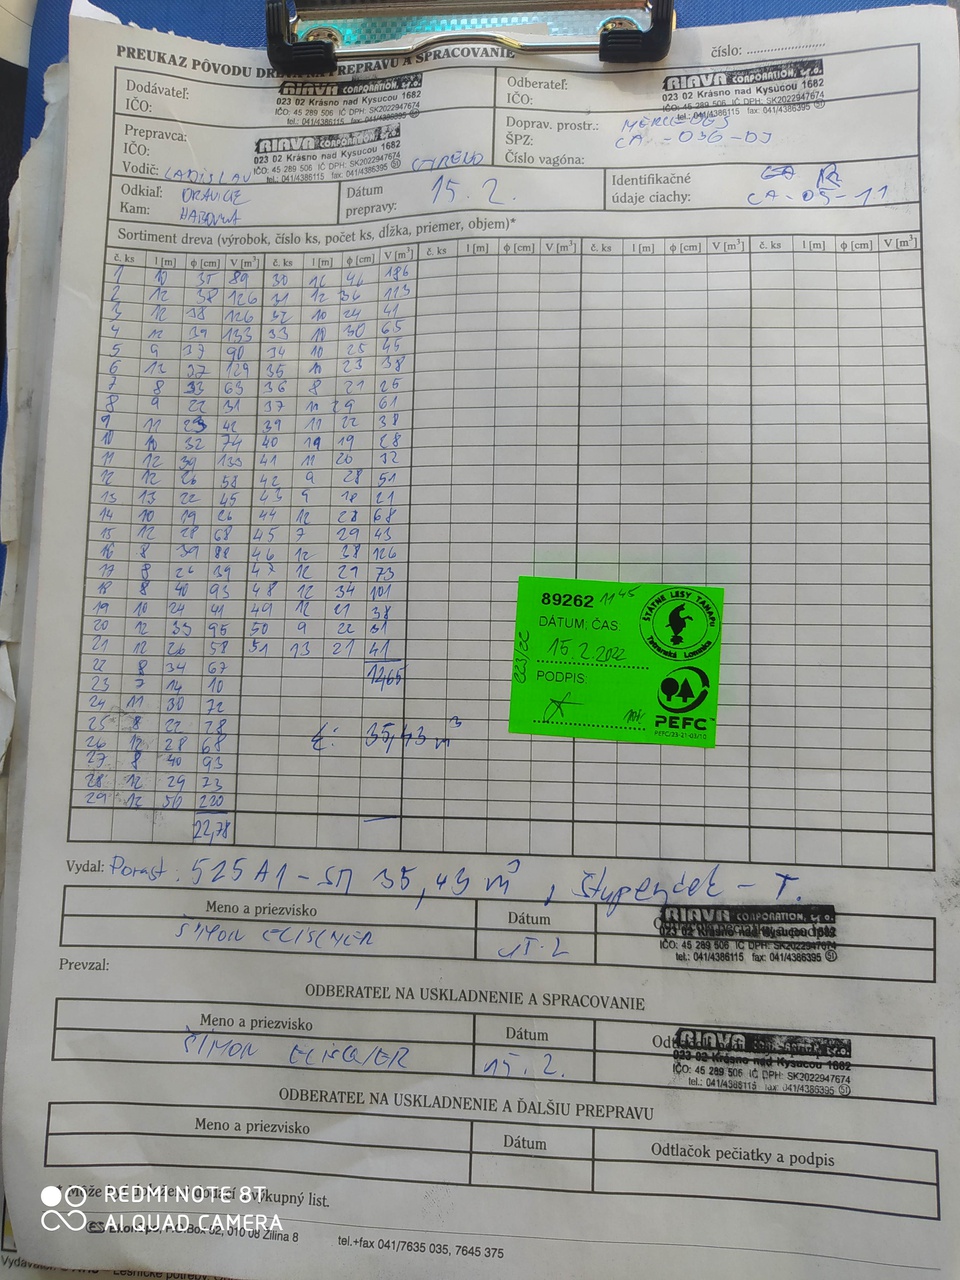 PREUKAZ PÔVODU DREVA NA PREPRAVU A SPRACOVANIE
číslo:
Dodávateľ:
IČO:
RIAVA CORPORATION, s.r.o.
023 02 Krásno nad Kysucou 1682
IČO: 45 289 506 IČ DPH: SK2022947674
tel.: 041/4386115 fax: 041/4386395
Odberateľ:
IČO:
RIAVA CORPORATION, s.r.o.
023 02 Krásno nad Kysucou 1682
IČO: 45 289 506 IČ DPH: SK2022947674
tel.: 041/4386115 fax: 041/4386395
Prepravca:
IČO:
Vodič: LADISLAV
RIAVA CORPORATION, s.r.o.
023 02 Krásno nad Kysucou 1682
IČO: 45 289 506 IČ DPH: SK2022947674
tel.: 041/4386115 fax: 041/4386395
Doprav. prostr.: MERCEDES
ŠPZ: CA-036-DJ
Číslo vagóna:
Odkiaľ: ORAVICE
Kam: HABOVKA
Dátum
prepravy: 15.2.
Identifikačné
údaje ciachy: CA-05-11
Sortiment dreva (výrobok, číslo ks, počet ks, dĺžka, priemer, objem)*
č. ks l [m] ϕ [cm] V [m³] č. ks l [m] ϕ [cm] V [m³] č. ks l [m] ϕ [cm] V [m³] č. ks l [m] ϕ [cm] V [m³] č. ks l [m] ϕ [cm] V [m³]
1 10 35 89 30 12 46 186
2 12 38 126 31 12 36 113
3 12 38 126 32 10 24 41
4 12 39 133 33 10 30 65
5 9 37 90 34 10 25 45
6 12 37 129 35 10 23 38
7 8 33 63 36 8 21 25
8 9 22 31 37 11 29 61
9 11 23 42 39 11 22 38
10 10 32 74 40 10 19 28
11 12 39 133 41 11 20 32
12 12 26 58 42 9 28 51
13 13 22 45 43 9 18 21
14 10 19 26 44 12 28 68
15 12 28 68 45 7 29 43
16 8 39 88 46 12 38 126
17 8 26 39 47 12 29 73
18 8 40 93 48 12 34 101
19 10 24 41 49 12 21 38
20 12 33 95 50 9 22 31
21 12 26 58 51 13 21 41
22 8 34 67 12,65
23 7 14 10
24 11 30 72
25 8 22 28
26 12 28 68 35,43 m³
27 8 40 93
28 12 29 73
29 12 50 220
22,78
89262 11 45
DÁTUM, ČAS
15.2.2022
PODPIS:
ŠTÁTNE LESY TANAPu
Tatranská Lomnica
PEFC™
PEFC/23-21-03/10
Vydal: Porast: 525 A1 - SM 35,43 m³,
Meno a priezvisko
Dátum
ŠIMON ELISCHER
15.2
RIAVA CORPORATION, s.r.o.
023 02 Krásno nad Kysucou 1682
IČO: 45 289 506 IČ DPH: SK2022947674
tel.: 041/4386115 fax: 041/4386395
Prevzal:
ODBERATEĽ NA USKLADNENIE A SPRACOVANIE
Meno a priezvisko
Dátum
ŠIMON ELISCHER
15.2.
RIAVA CORPORATION, s.r.o.
023 02 Krásno nad Kysucou 1682
IČO: 45 289 506 IČ DPH: SK2022947674
tel.: 041/4386115 fax: 041/4386395
ODBERATEĽ NA USKLADNENIE A ĎALŠIU PREPRAVU
Meno a priezvisko
Dátum
Odtlačok pečiatky a podpis
* Môže výkupný list.
P.O.Box 02, 010 08 Žilina 8 tel.+fax 041/7635 035, 7645 375
REDMI NOTE 8T
AI QUAD CAMERA